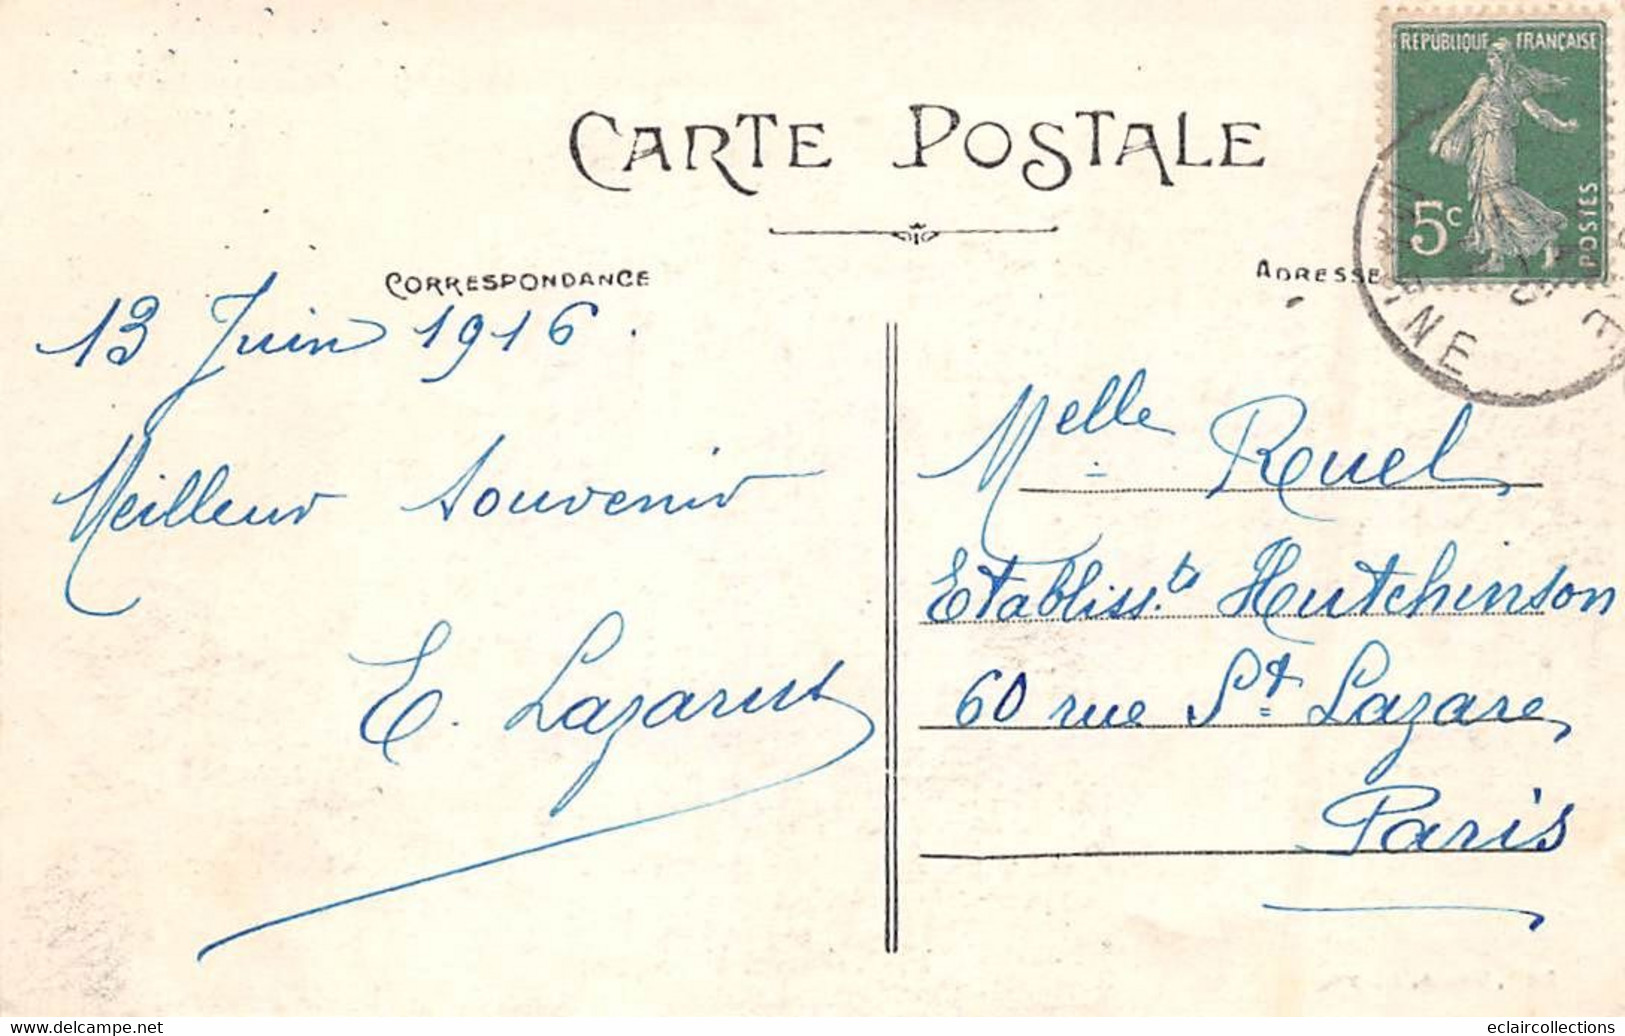 CARTE POSTALE
CORRESPONDANCE
ADRESSE
RÉPUBLIQUE FRANÇAISE
5c
POSTES
13 Juin 1916.
Meilleur souvenir
E. Lazarus
Melle Rouel
Etablissts Hutchinson
60 rue St Lazare
Paris
www.delcampe.net
eclaircollections